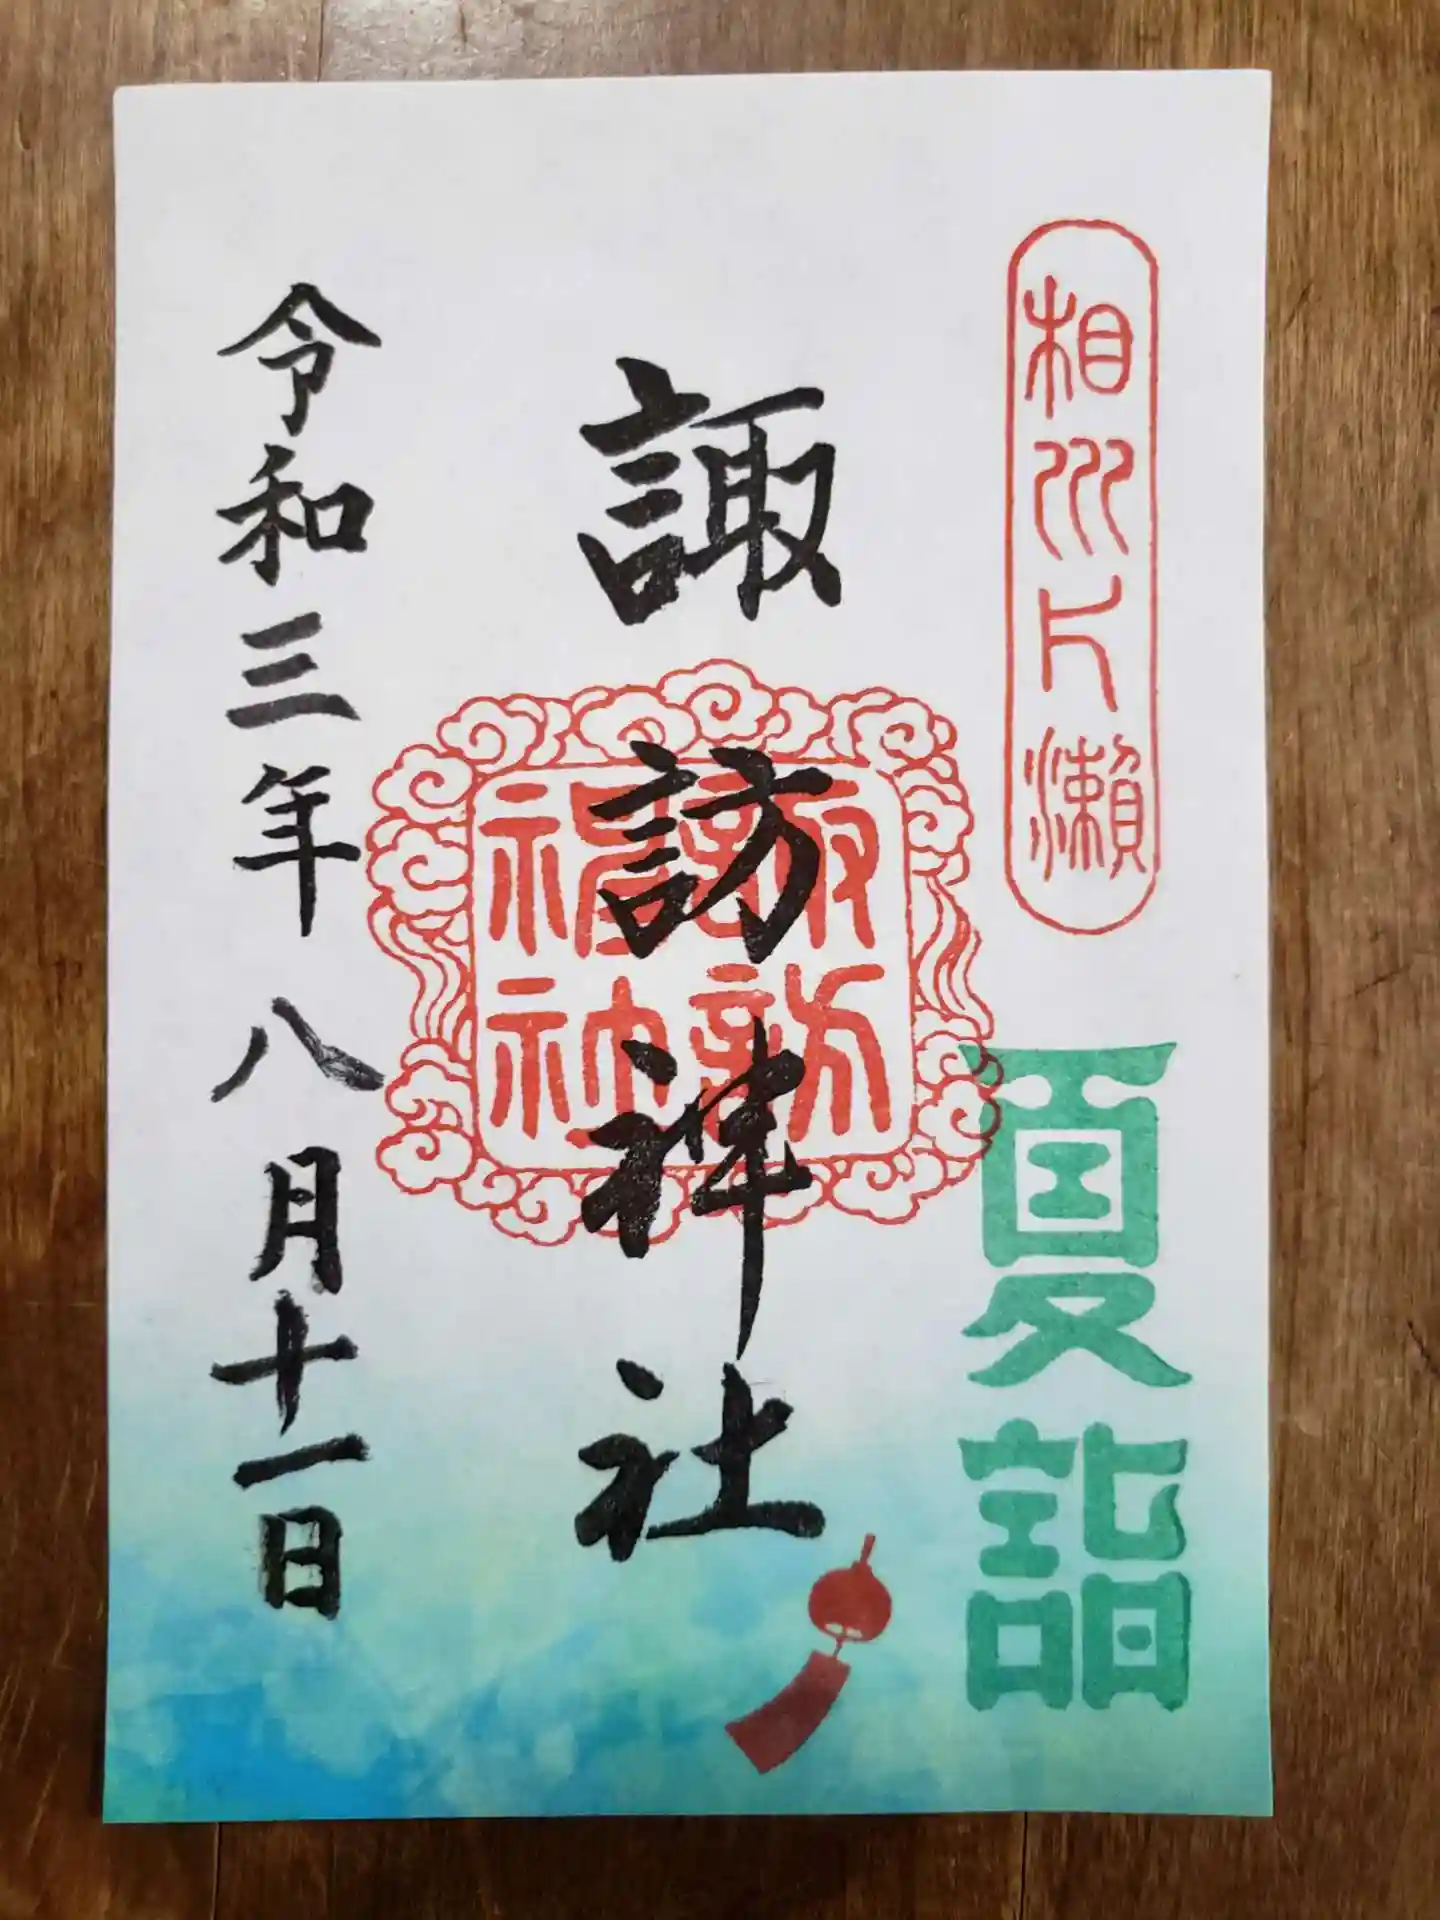 相州片瀬
夏詣
諏訪神社
諏訪
神社
令和三年八月十一日